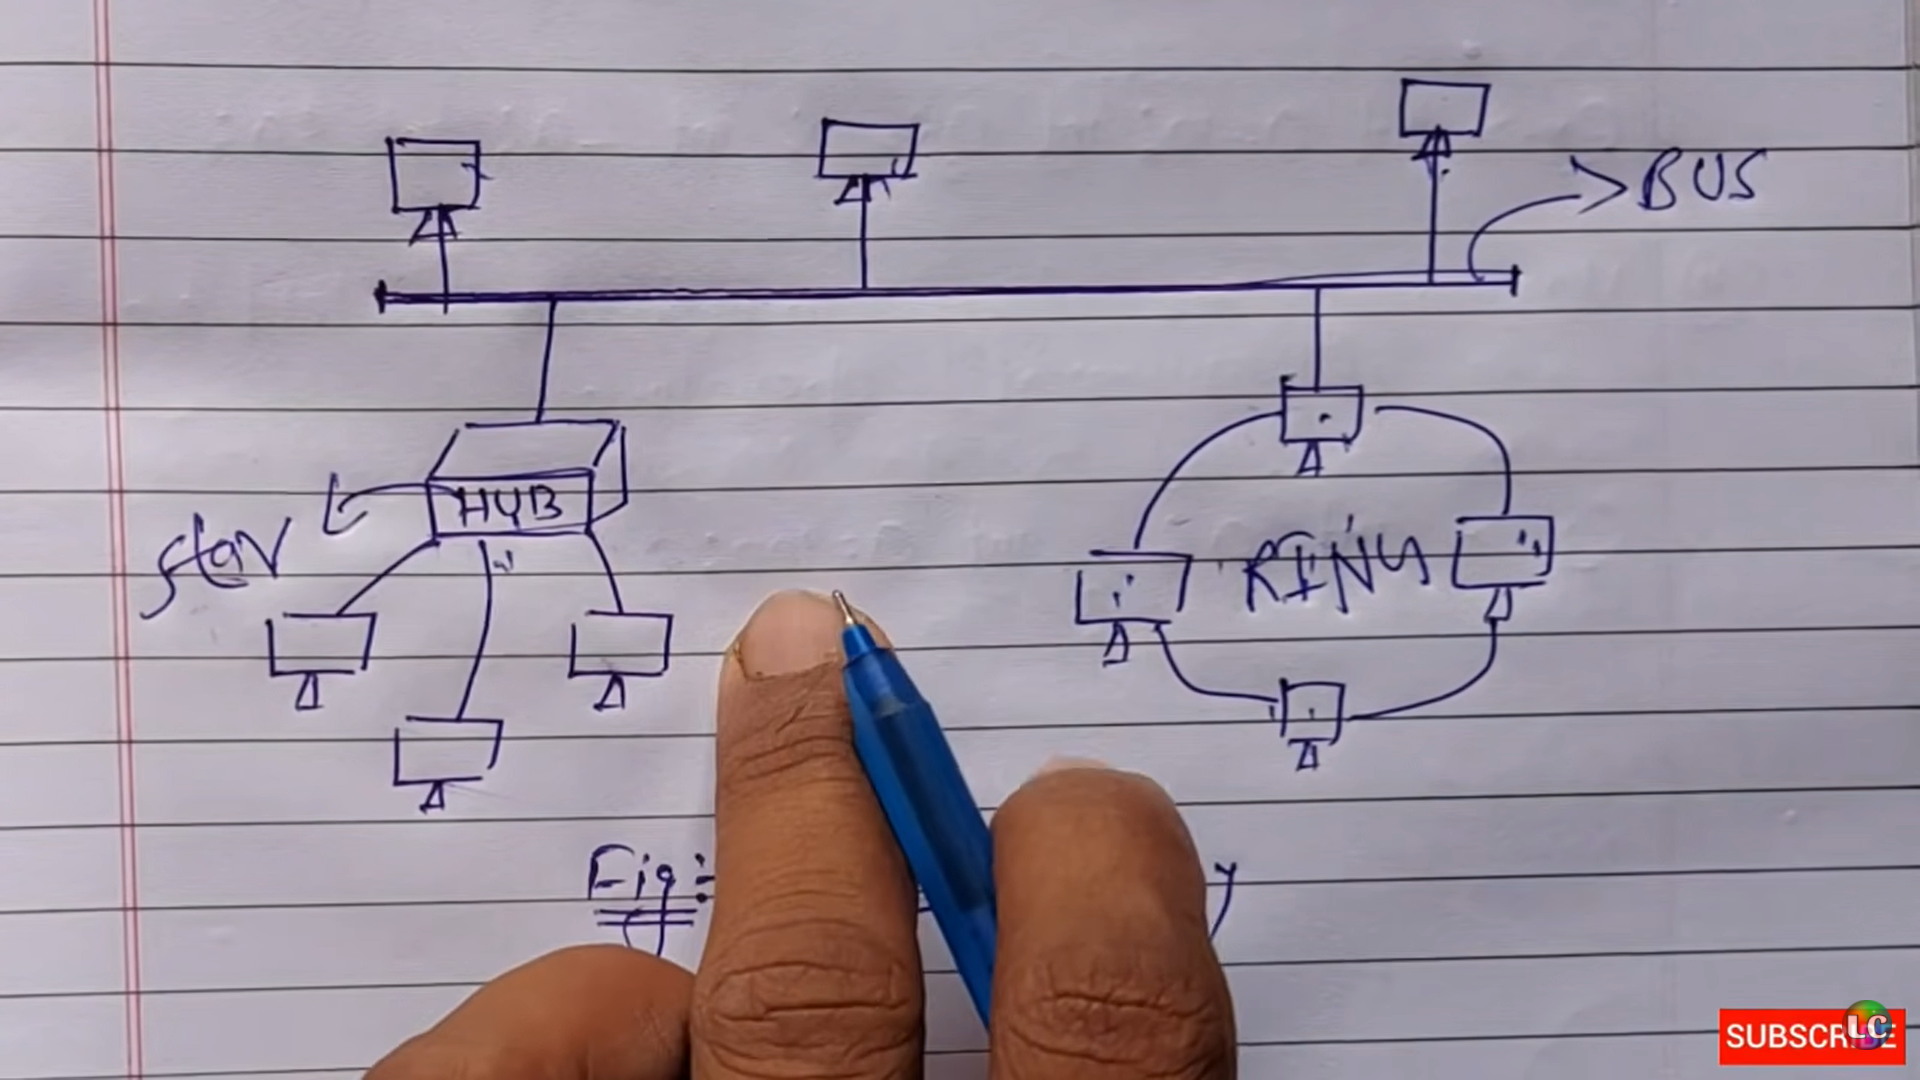 BUS
HUB
star
RING
Fig:-
y
SUBSCRIBE
LC